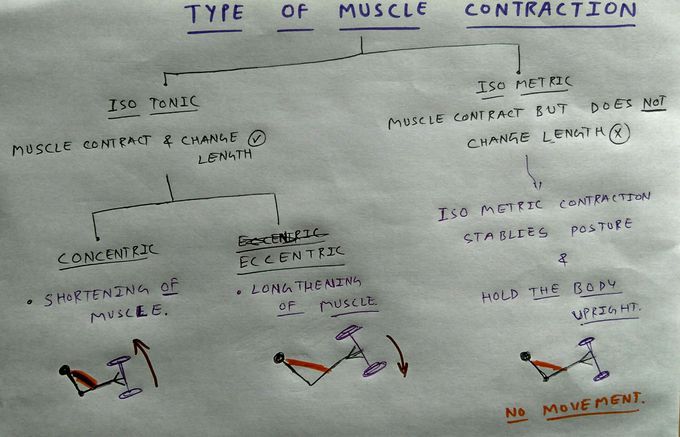 TYPE OF MUSCLE CONTRACTION
ISO TONIC
MUSCLE CONTRACT & CHANGE
LENGTH
ISO METRIC
MUSCLE CONTRACT BUT DOES NOT
CHANGE LENGTH
CONCENTRIC
• SHORTENING OF
MUSCLE.
ECCENTRIC
• LONGTHENING
OF MUSCLE
ISO METRIC CONTRACTION
STABLIES POSTURE
&
HOLD THE BODY
UPRIGHT.
NO MOVEMENT.